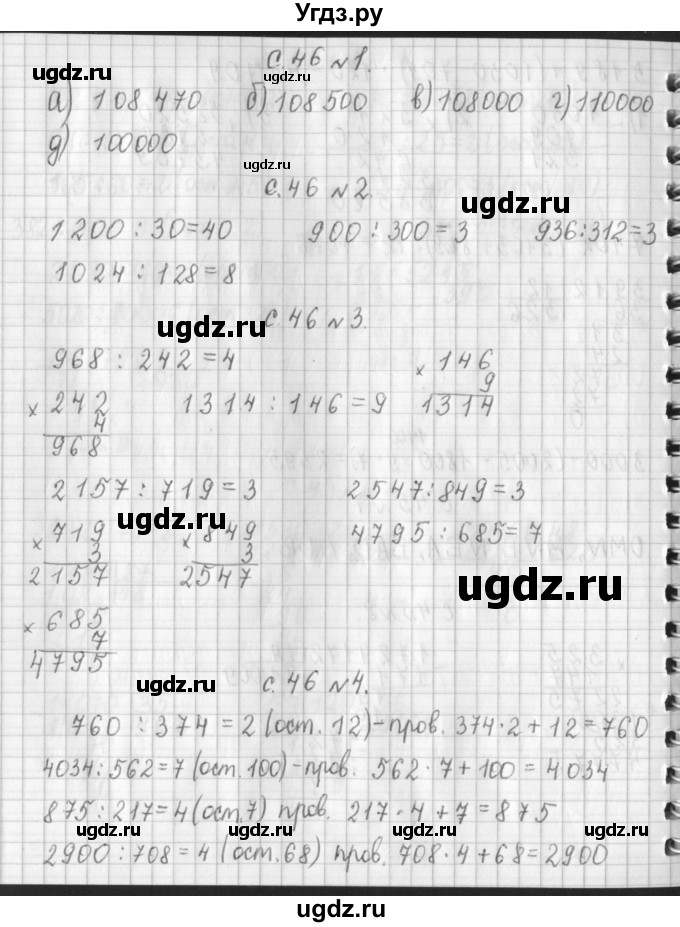 Угдз.ру
с. 46 №1.
ugdz.ru
ugdz.ru
ugdz.ru
а) 108470 б) 108500 в) 108000 г) 110000
д) 100000
ugdz.ru
с. 46 №2.
ugdz.ru
1200 : 30 = 40 900 : 300 = 3 936 : 312 = 3
1024 : 128 = 8
с. 46 №3.
ugdz.ru
968 : 242 = 4
× 146
9
1314
× 242
4
968
1314 : 146 = 9
2157 : 719 = 3 2547 : 849 = 3
ugdz.ru
× 719
3
2157
× 849
3
2547
4795 : 685 = 7
ugdz.ru
× 685
7
4795
ugdz.ru
с. 46 №4.
760 : 374 = 2 (ост. 12) – пров. 374 · 2 + 12 = 760
4034 : 562 = 7 (ост. 100) – пров. 562 · 7 + 100 = 4034
875 : 217 = 4 (ост. 7) пров. 217 · 4 + 7 = 875
ugdz.ru ugdz.ru ugdz.ru ugdz.ru
2900 : 708 = 4 (ост. 68) пров. 708 · 4 + 68 = 2900
ugdz.ru